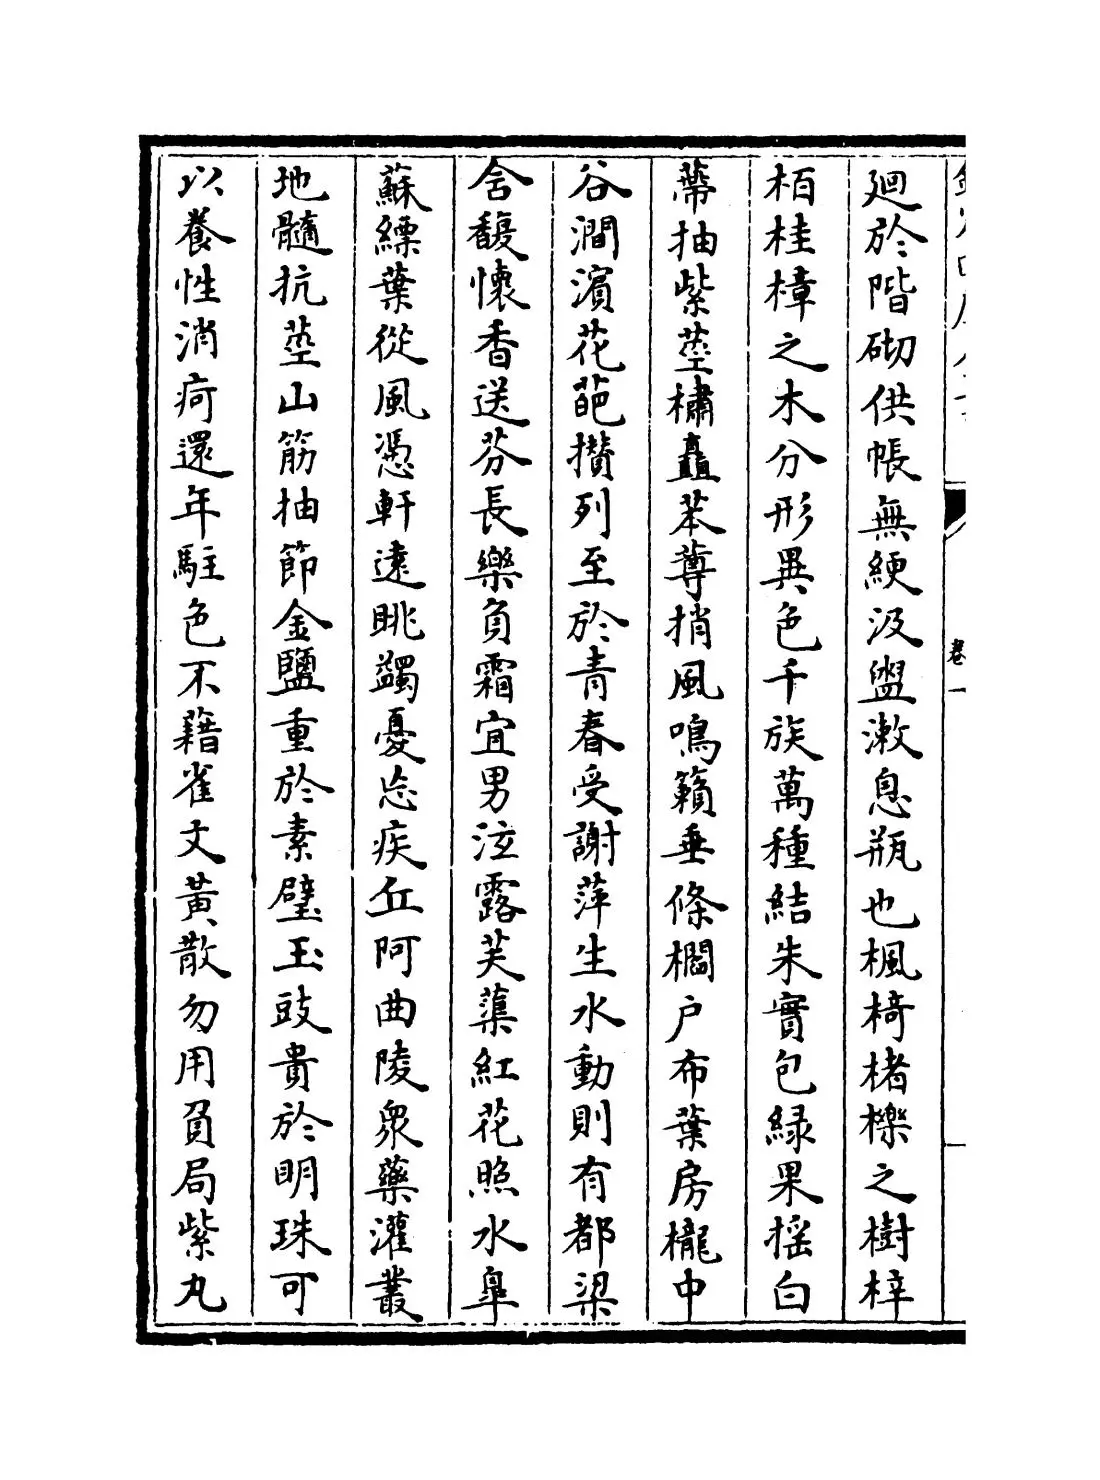 卷一
廻於階砌供帳無綆汲盥漱息瓶也楓椅楮櫟之樹梓
栢桂樟之木分形異色千族萬種結朱實包緑果揺白
蔕抽紫莖橚矗苯䔿捎風鳴籟垂條櫩户布葉房櫳中
谷澗濵花葩攢列至於青春受謝萍生水動則有都梁
含馥懷香送芬長樂負霜宜男泫露芙蕖紅花照水皐
蘇縹葉從風憑軒逺眺蠲憂忘疾丘阿曲陵衆藥灌叢
地髓抗莖山筋抽節金鹽重於素璧玉豉貴於明珠可
以養性消疴還年駐色不藉雀文黄散勿用負局紫丸